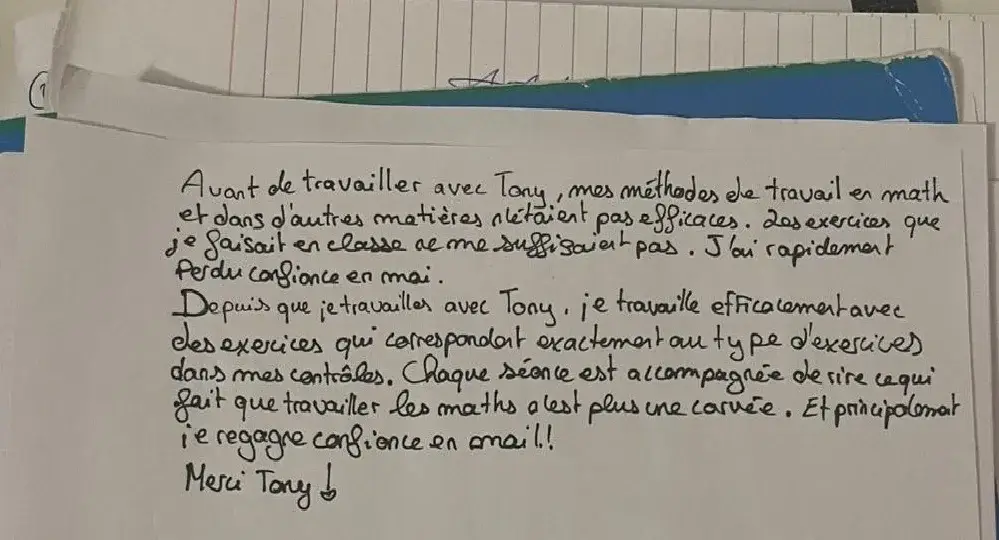 Avant de travailler avec Tony, mes méthodes de travail en math
et dans d'autres matières n'étaient pas efficaces. Les exercices que
je faisait en classe ne me suffisaient pas. J'ai rapidement
perdu confiance en moi.
Depuis que je travailler avec Tony, je travaille efficacement avec
des exercices qui correspondent exactement au type d'exercices
dans mes contrôles. Chaque séance est accompagnée de rire ce qui
fait que travailler les maths n'est plus une corvée. Et principalement
je regagne confiance en moi!!
Merci Tony !